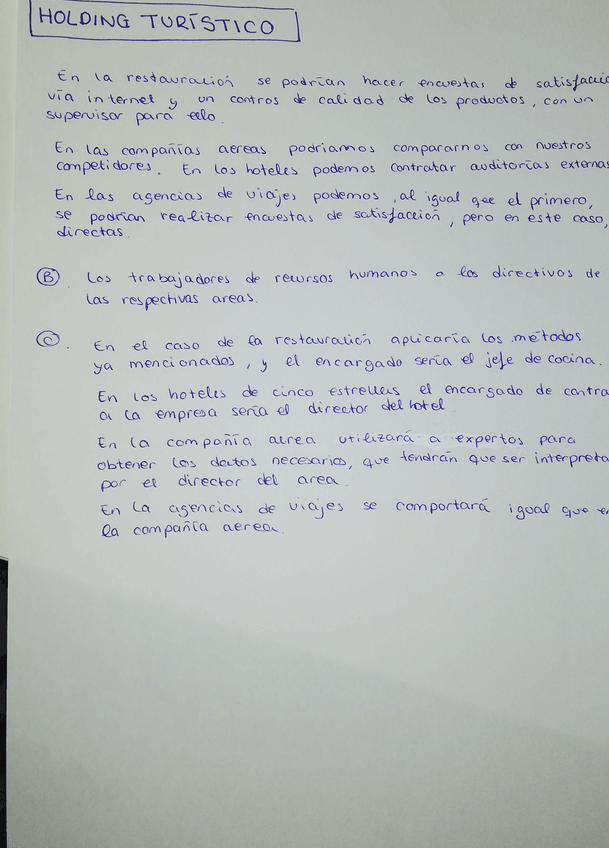 HOLDING TURÍSTICO
En la restauración se podrían hacer encuestas de satisfacció
vía internet y un contros de calidad de los productos, con un
supervisor para ello.
En las compañías aereas podriamos compararnos con nuestros
competidores. En los hoteles podemos contratar auditorías externas
En las agencias de viajes podemos, al igual que el primero,
se podrían realizar encuestas de satisfacción, pero en este caso,
directas.
B. Los trabajadores de recursos humanos o los directivos de
las respectivas areas.
C. En el caso de la restauración aplicaría los métodos
ya mencionados, y el encargado sería el jefe de cocina.
En los hoteles de cinco estrellas el encargado de contra
a la empresa sería el director del hotel
En la compañía aerea utilizará a expertos para
obtener los datos necesarios, que tendrán que ser interpreta
por el director del area.
En la agencias de viajes se comportará igual que en
la compañía aerea.